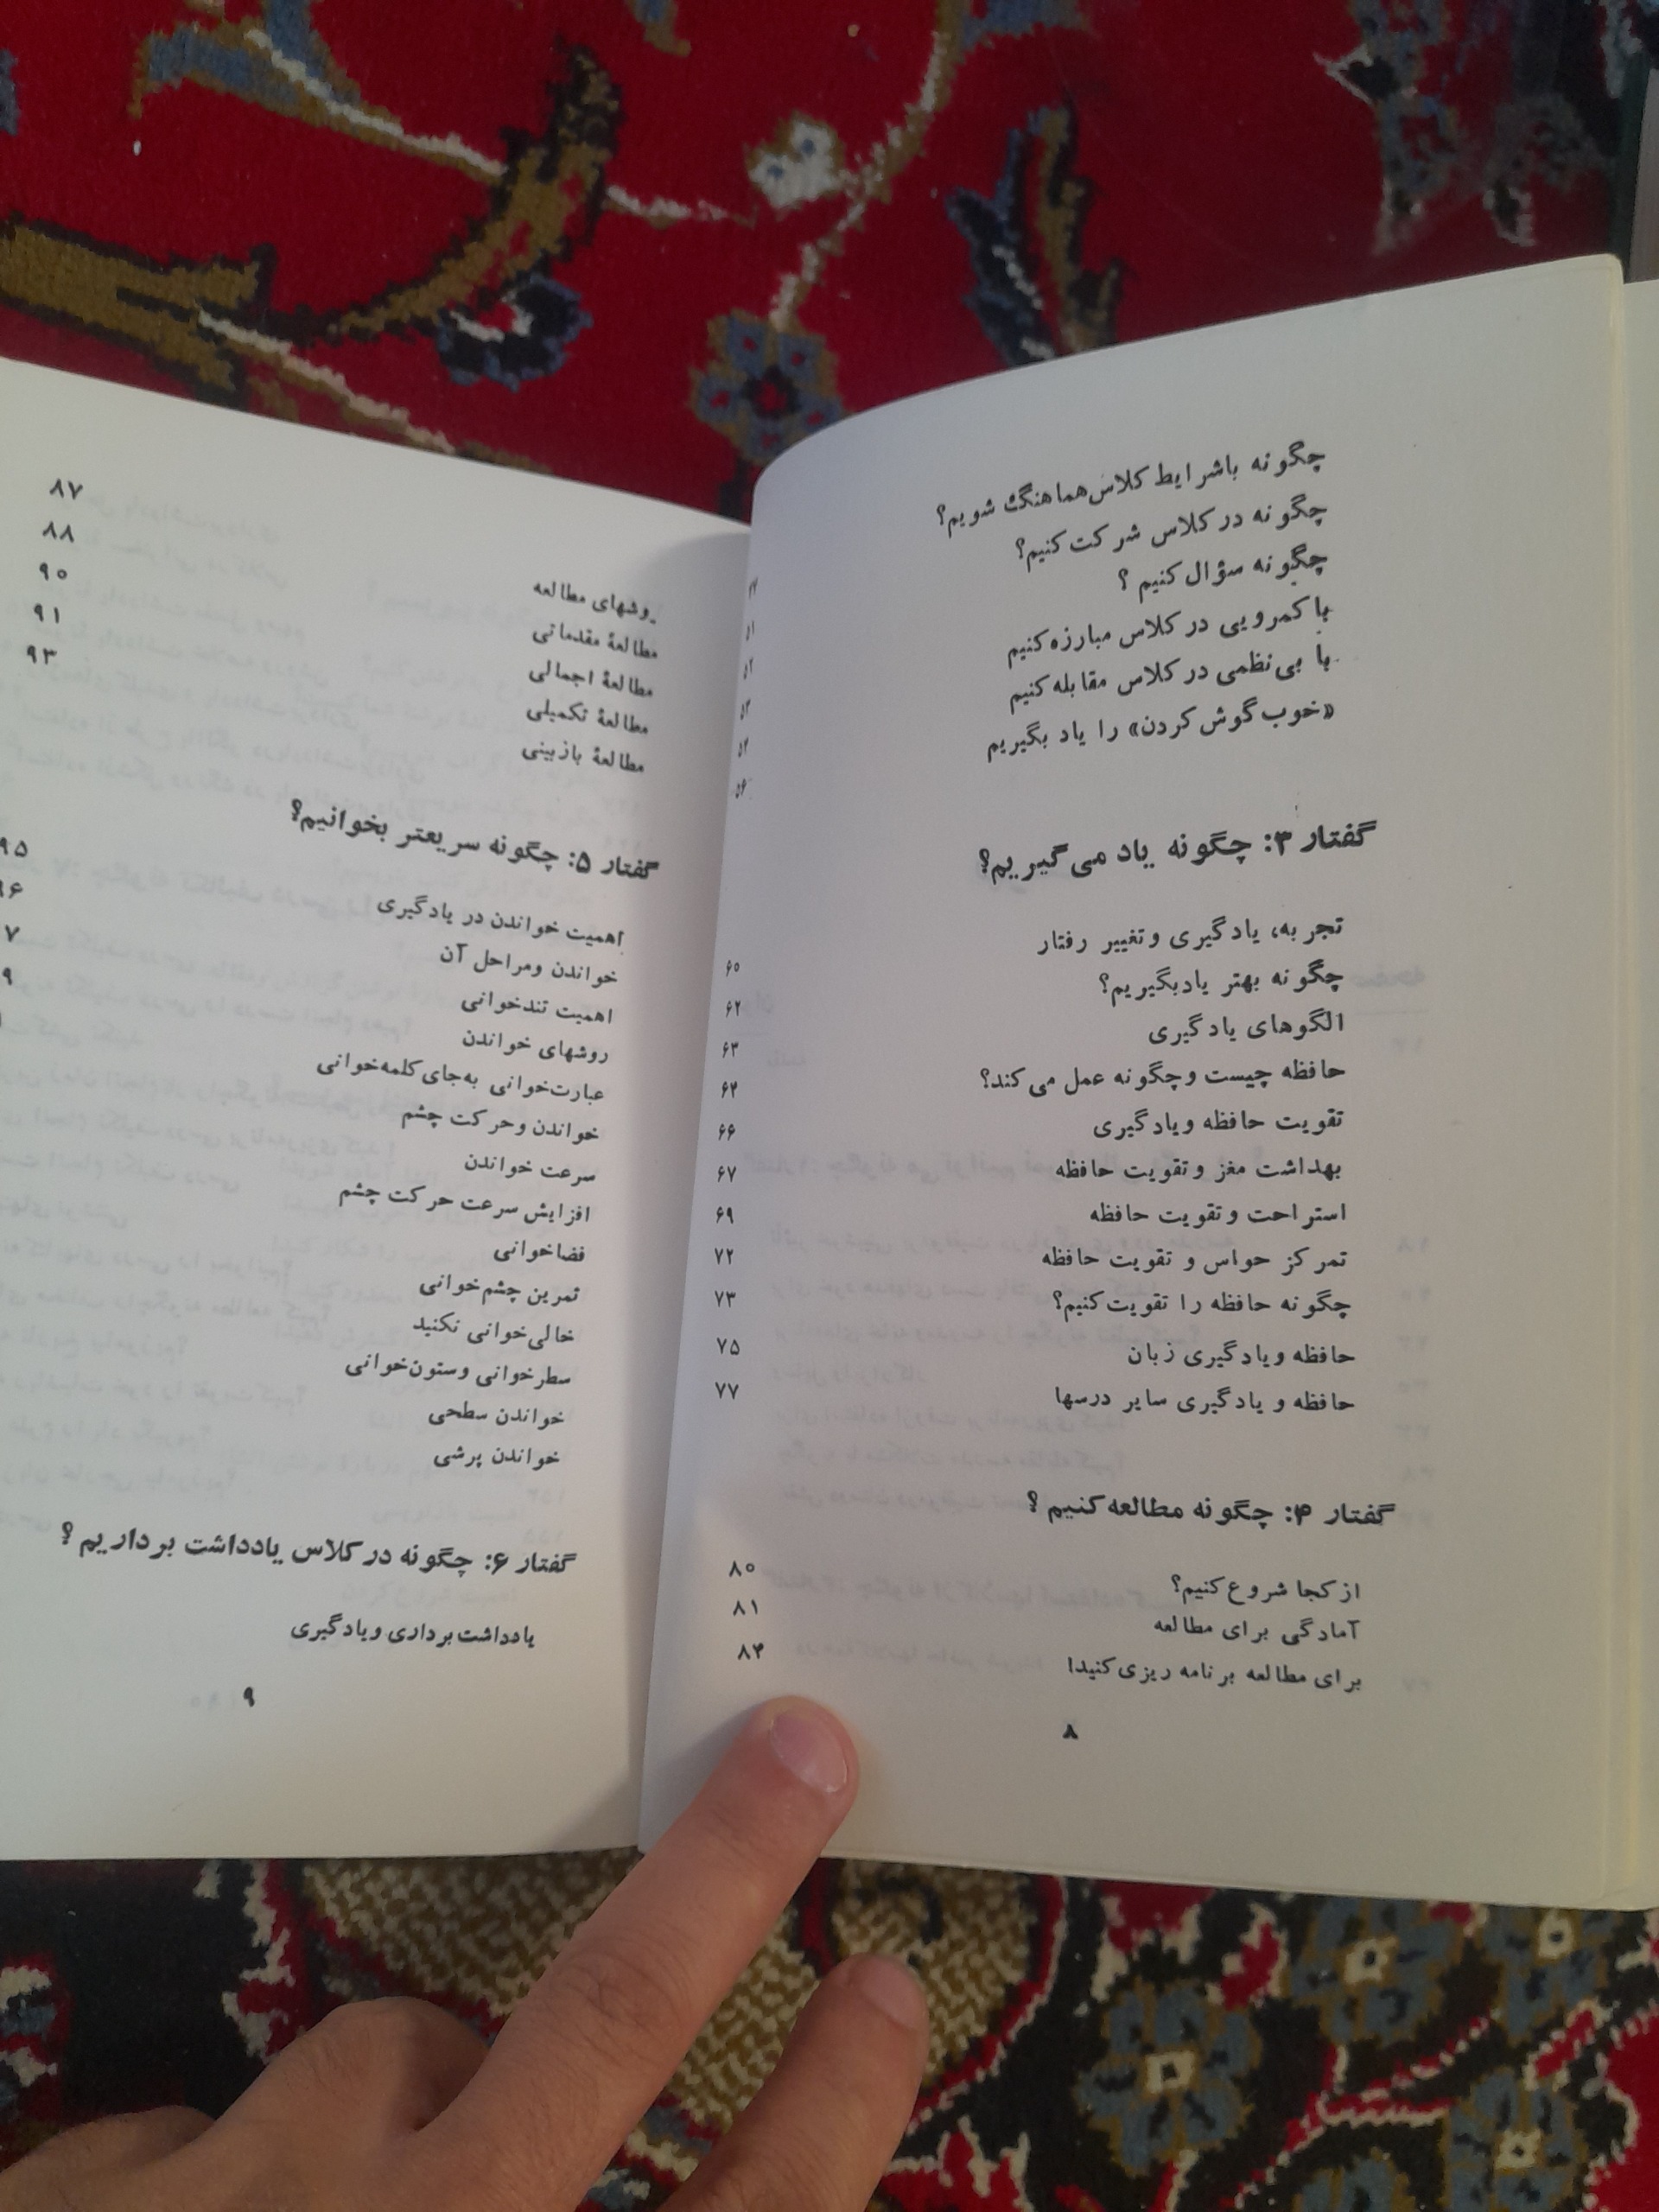 چگونه باشرایط کلاس هماهنگ شویم؟ ۴۷
چگونه در کلاس شرکت کنیم؟ ۵۱
چگونه سؤال کنیم ؟ ۵۲
با کمرویی در کلاس مبارزه کنیم ۵۳
با بی‌نظمی در کلاس مقابله کنیم ۵۴
«خوب گوش کردن» را یاد بگیریم ۵۶
گفتار ۳: چگونه یاد می‌گیریم؟
تجربه، یادگیری و تغییر رفتار ۶۰
چگونه بهتر یادبگیریم؟ ۶۲
الگوهای یادگیری ۶۳
حافظه چیست و چگونه عمل می‌کند؟ ۶۴
تقویت حافظه و یادگیری ۶۶
بهداشت مغز و تقویت حافظه ۶۷
استراحت و تقویت حافظه ۶۹
تمرکز حواس و تقویت حافظه ۷۲
چگونه حافظه را تقویت کنیم؟ ۷۳
حافظه و یادگیری زبان ۷۵
حافظه و یادگیری سایر درسها ۷۷
گفتار ۴: چگونه مطالعه کنیم ؟
از کجا شروع کنیم؟ ۸۰
آمادگی برای مطالعه ۸۱
برای مطالعه برنامه ریزی کنید! ۸۴
۸
روشهای مطالعه ۸۷
مطالعهٔ مقدماتی ۸۸
مطالعهٔ اجمالی ۹۰
مطالعهٔ تکمیلی ۹۱
مطالعهٔ بازبینی ۹۳
گفتار ۵: چگونه سریعتر بخوانیم؟
اهمیت خواندن در یادگیری ۹۵
خواندن و مراحل آن ۹۶
اهمیت تندخوانی
روشهای خواندن
عبارت‌خوانی به‌جای کلمه‌خوانی
خواندن و حرکت چشم
سرعت خواندن
افزایش سرعت حرکت چشم
فضاخوانی
تمرین چشم‌خوانی
خالی‌خوانی نکنید
سطرخوانی و ستون‌خوانی
خواندن سطحی
خواندن پرشی
گفتار ۶: چگونه در کلاس یادداشت برداریم ؟
یادداشت‌برداری و یادگیری
۹